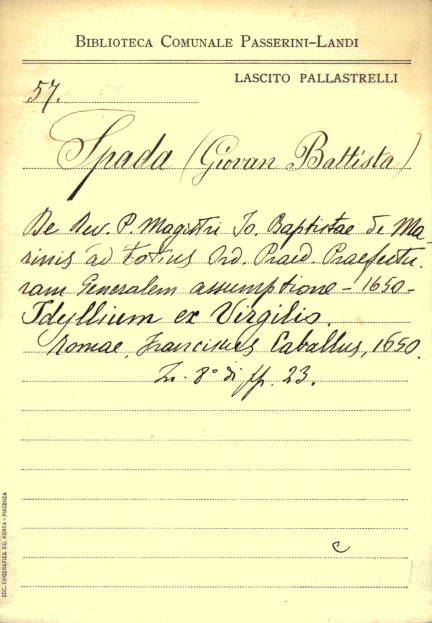 BIBLIOTECA COMUNALE PASSERINI-LANDI
LASCITO PALLASTRELLI
57.
Spada (Giovan Battista)
De Rev. P. Magistri Jo. Baptistae de Ma-
rinis ad totius Ord. Praed. Praefectu-
ram Generalem assumptione - 1650 -
Idyllium ex Virgilio.
Romae, Franciscus Caballus, 1650.
In. 8° di ff. 23.
c
SOC. TIPOGRAFICA ED. PORTA - PIACENZA